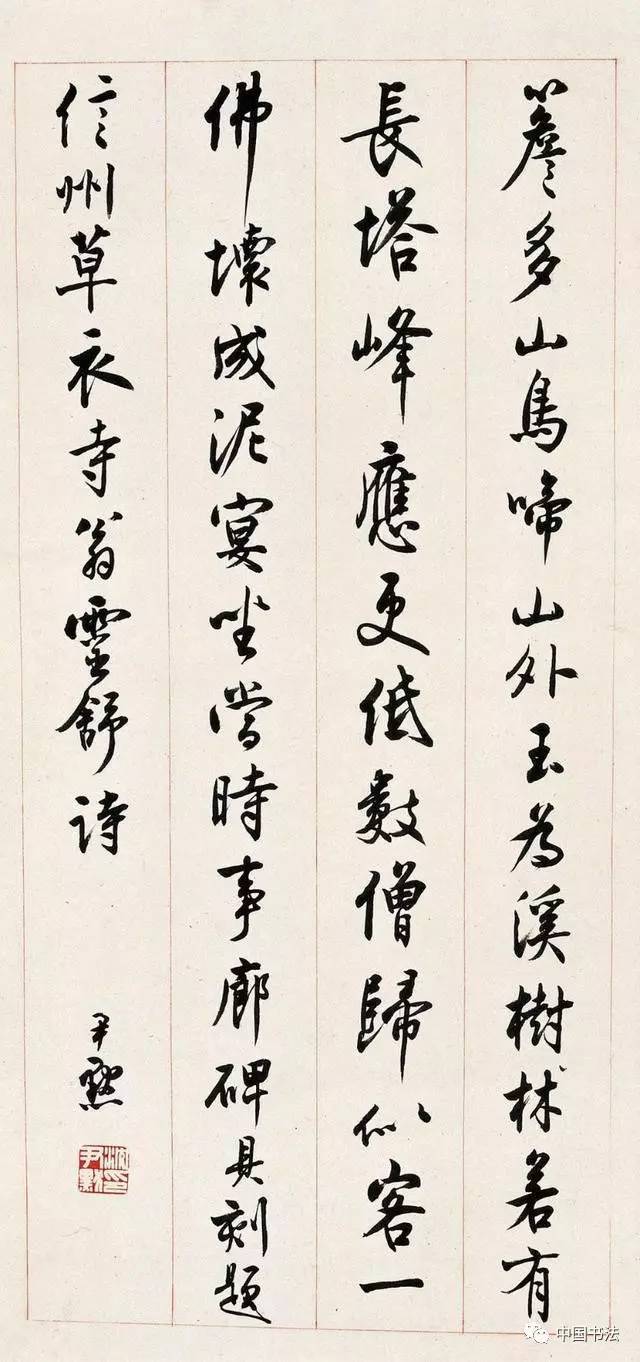 簷多山鳥啼山外玉為溪樹林若有
長塔峰應更低數僧歸似客一
佛壞成泥宴坐當時事廊碑具刻題
信州草衣寺翁靈舒詩
尹默
沈尹默印
中国书法